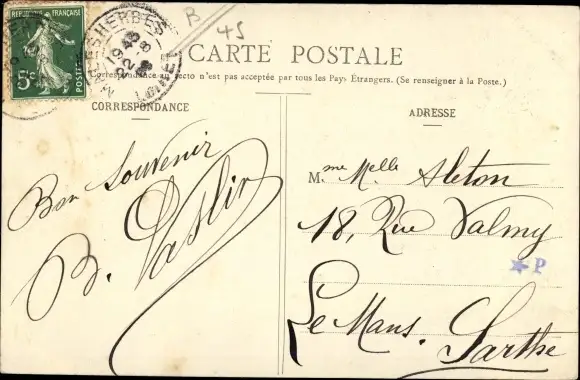 RÉPUBLIQUE FRANÇAISE
5c
POSTES
MALESHERBES
LOIRET
B
45
CARTE POSTALE
Correspondance au recto n'est pas acceptée par tous les Pays Étrangers. (Se renseigner à la Poste.)
CORRESPONDANCE
Bon Souvenir
B. Vaslin
ADRESSE
Mme Melle Aleton
18, Rue Valmy
★ P
Le Mans. Sarthe